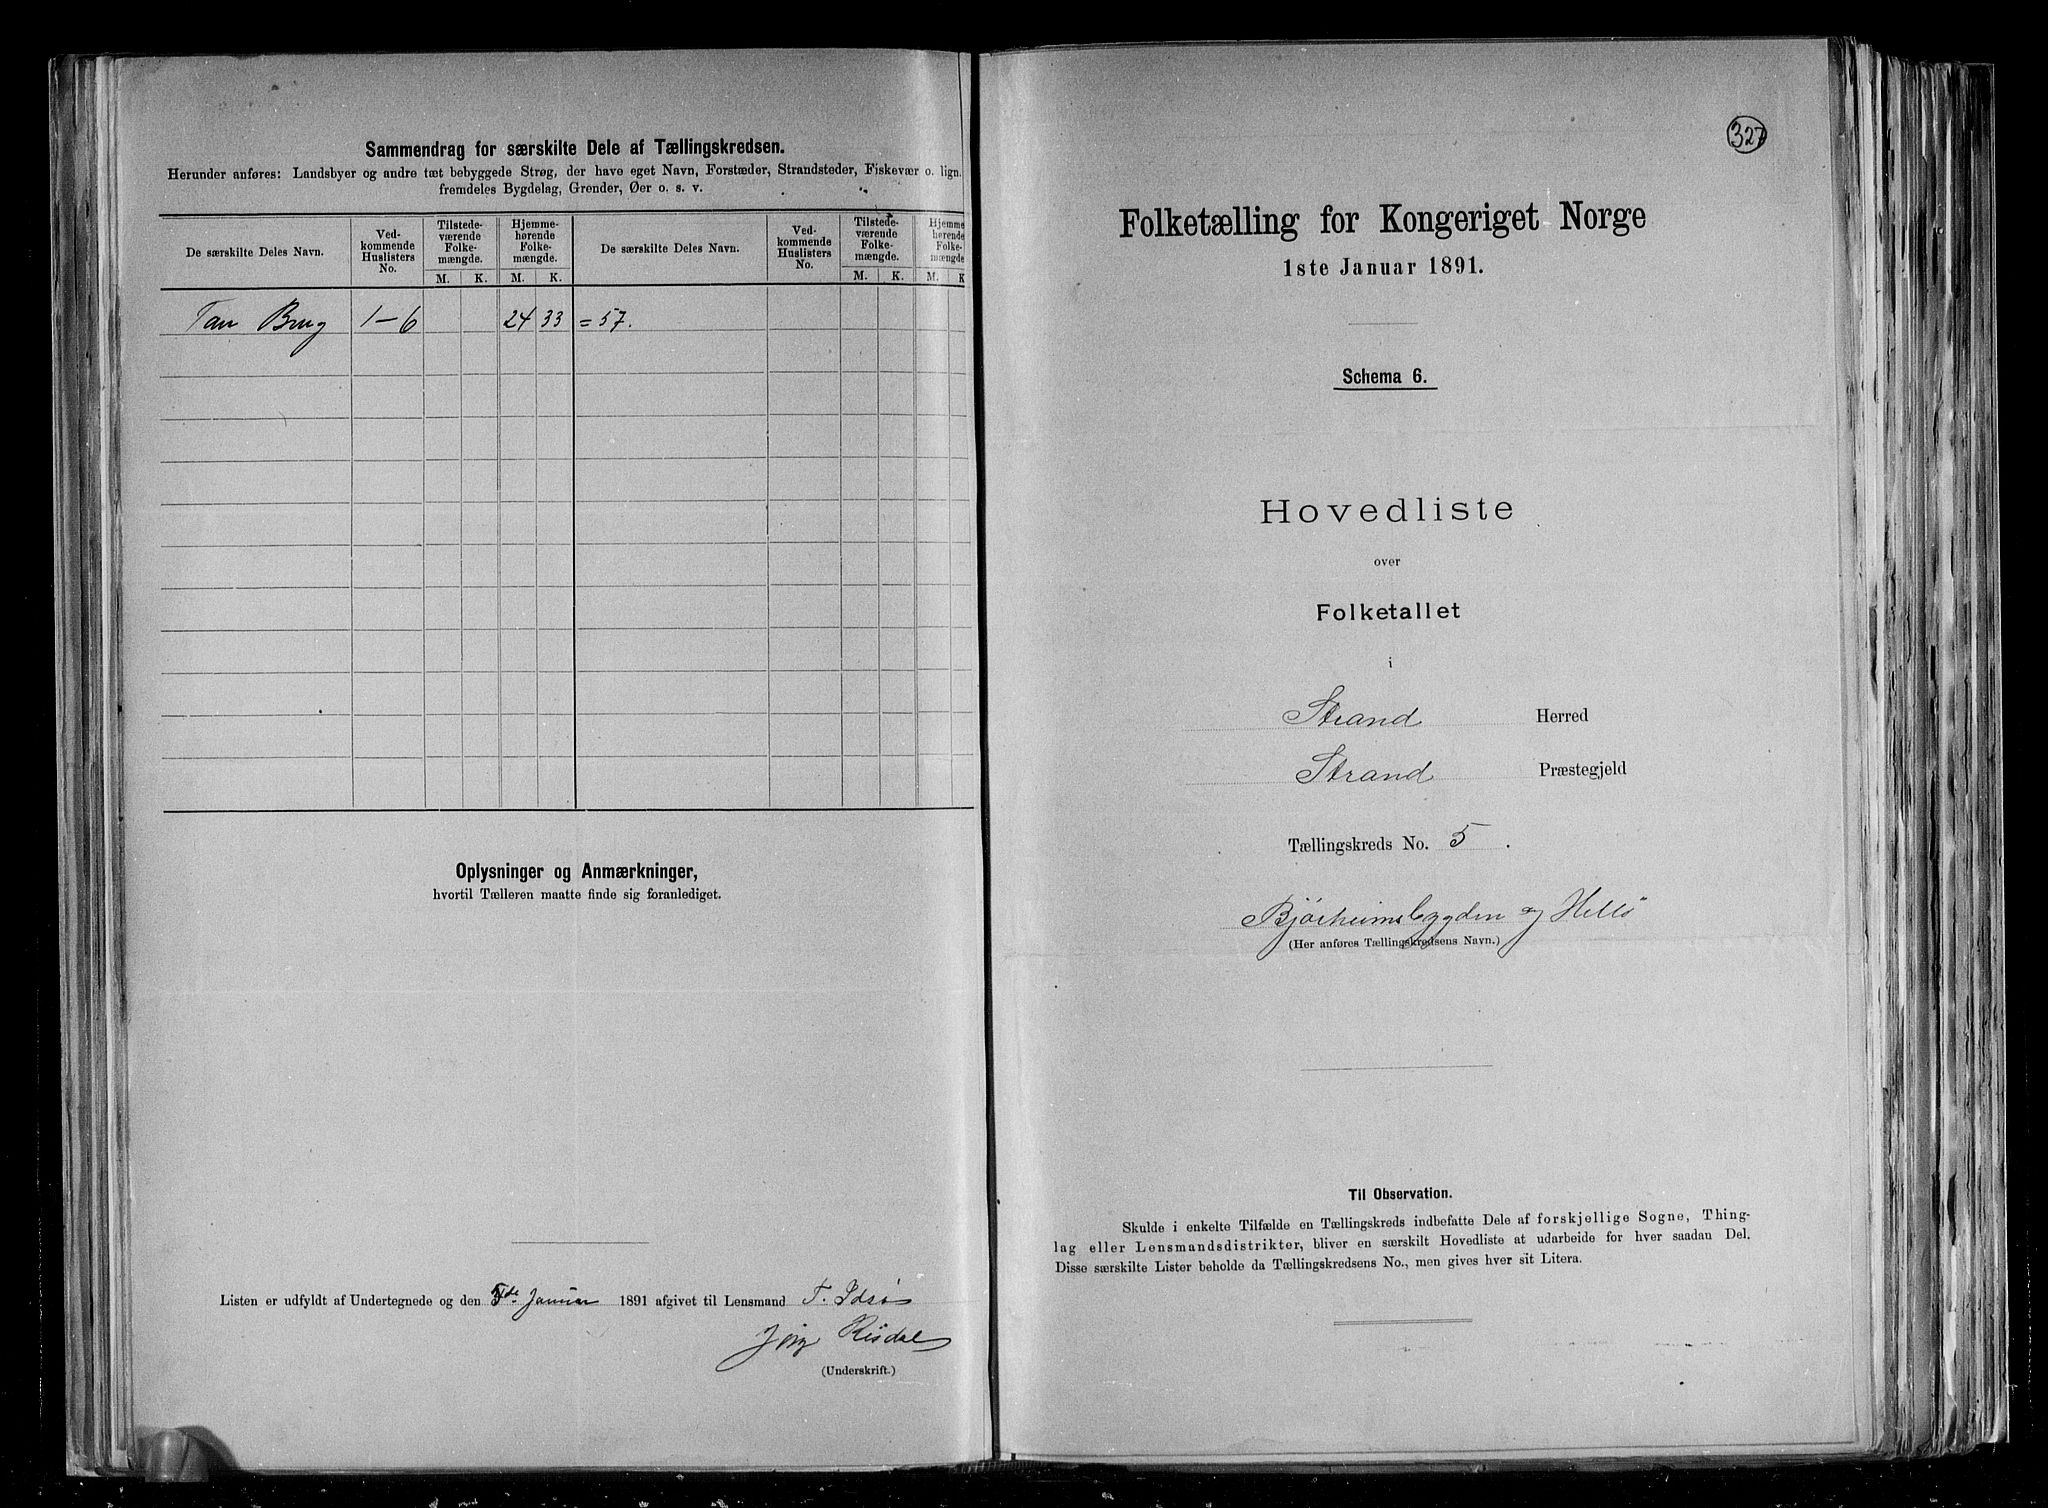 Sammendrag for særskilte Dele af Tællingskredsen.
Herunder anføres: Landsbyer og andre tæt bebyggede Strøg, der have eget Navn, Forstæder, Strandsteder, Fiskevær o. lign.
fremdeles Bygdelag, Grender, Øer o. s. v.
De særskilte Deles Navn.
Ved-
kommende
Huslisters
No.
Tilstede-
værende
Folke-
mængde.
M. K.
Hjemme-
hørende
Folke-
mængde.
M. K.
De særskilte Deles Navn.
Ved-
kommende
Huslisters
No.
Tilstede-
værende
Folke-
mængde.
M. K.
Hjemme
hørende
Folke-
mængde
M. K
Tau Brug 1-6 24 33 = 57.
Oplysninger og Anmærkninger,
hvortil Tælleren maatte finde sig foranlediget.
Listen er udfyldt af Undertegnede og den Januar 1891 afgivet til Lensmand T. Idsø
Jørg Risdal
(Underskrift.)
327
Folketælling for Kongeriget Norge
1ste Januar 1891.
Schema 6.
Hovedliste
over
Folketallet
i
Strand Herred
Strand Præstegjeld
Tællingskreds No. 5.
Bjørheimsbygden og Hellö
(Her anføres Tællingskredsens Navn.)
Til Observation.
Skulde i enkelte Tilfælde en Tællingskreds indbefatte Dele af forskjellige Sogne, Thing-
lag eller Lensmandsdistrikter, bliver en særskilt Hovedliste at udarbeide for hver saadan Del.
Disse særskilte Lister beholde da Tællingskredsens No., men gives hver sit Litera.